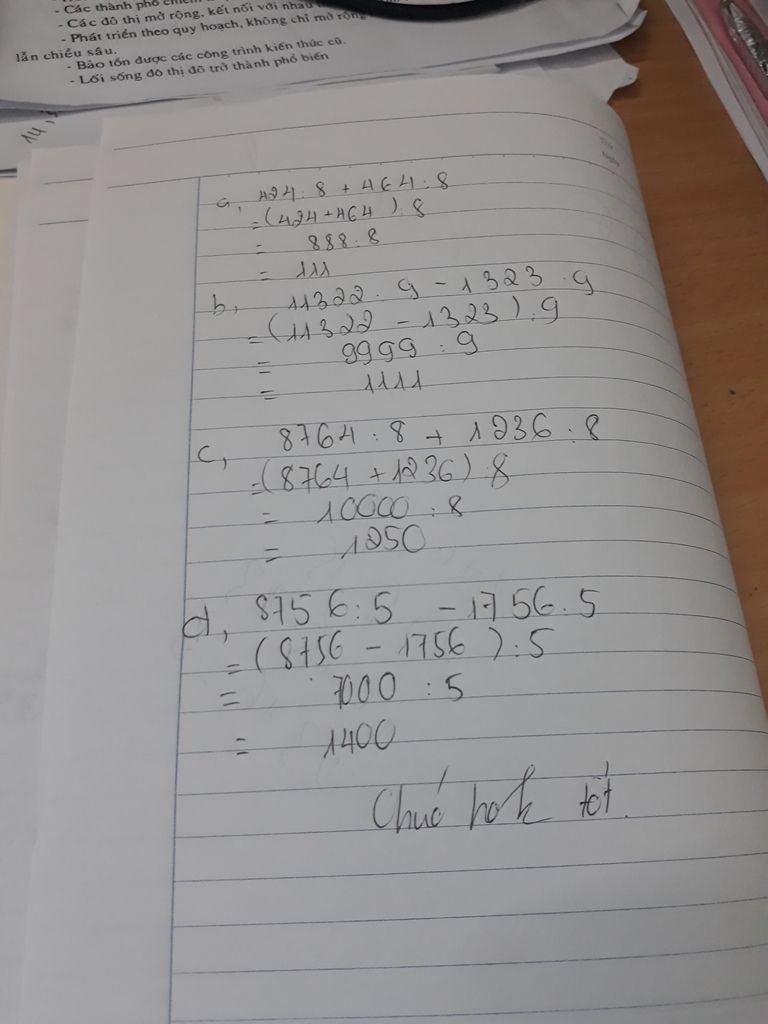 - Các thành phố chiếm
- Các đô thị mở rộng, kết nối với nhau
- Phát triển theo quy hoạch, không chỉ mở rộng
lẫn chiều sâu.
- Bảo tồn được các công trình kiến thức cũ.
- Lối sống đô thị đã trở thành phổ biến
a, 424 : 8 + 464 : 8
= (424 + 464) : 8
= 888 : 8
= 111
b, 11322 : 9 - 1323 : 9
= (11322 - 1323) : 9
= 9999 : 9
= 1111
c, 8764 : 8 + 1236 : 8
= (8764 + 1236) : 8
= 10000 : 8
= 1250
d, 8756 : 5 - 1756 : 5
= (8756 - 1756) : 5
= 7000 : 5
= 1400
Chúc hok tốt.